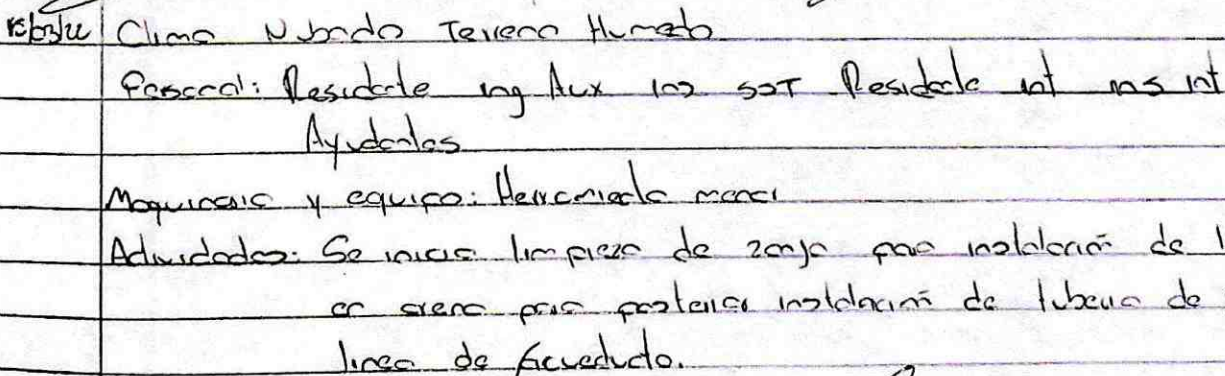 Clima Nubado Terreno Humedo
Personal: Residente ing Aux ins SST Residente int ins int
Ayudantes
Maquinaria y equipo: Herramienta menor
Actividades: Se inicia limpieza de zanja para instalación de
en arena para posterior instalación de tuberia de
linea de Acueducto.